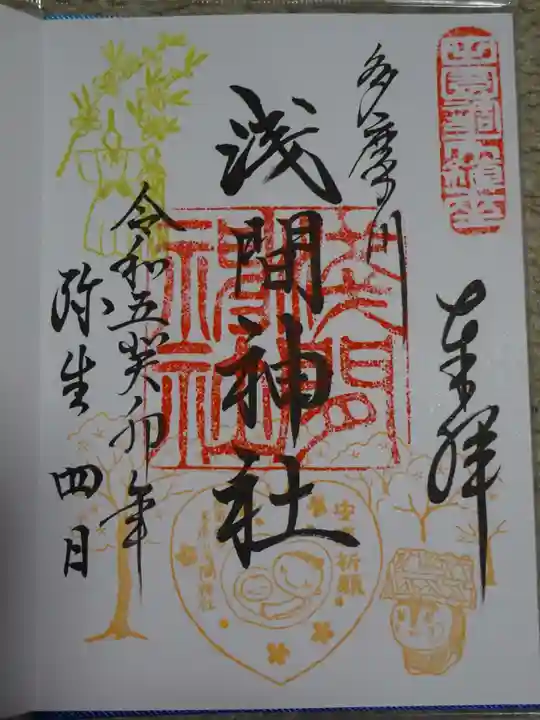 奉拝
多摩川
浅間神社
令和五癸卯年
弥生四日
安産祈願